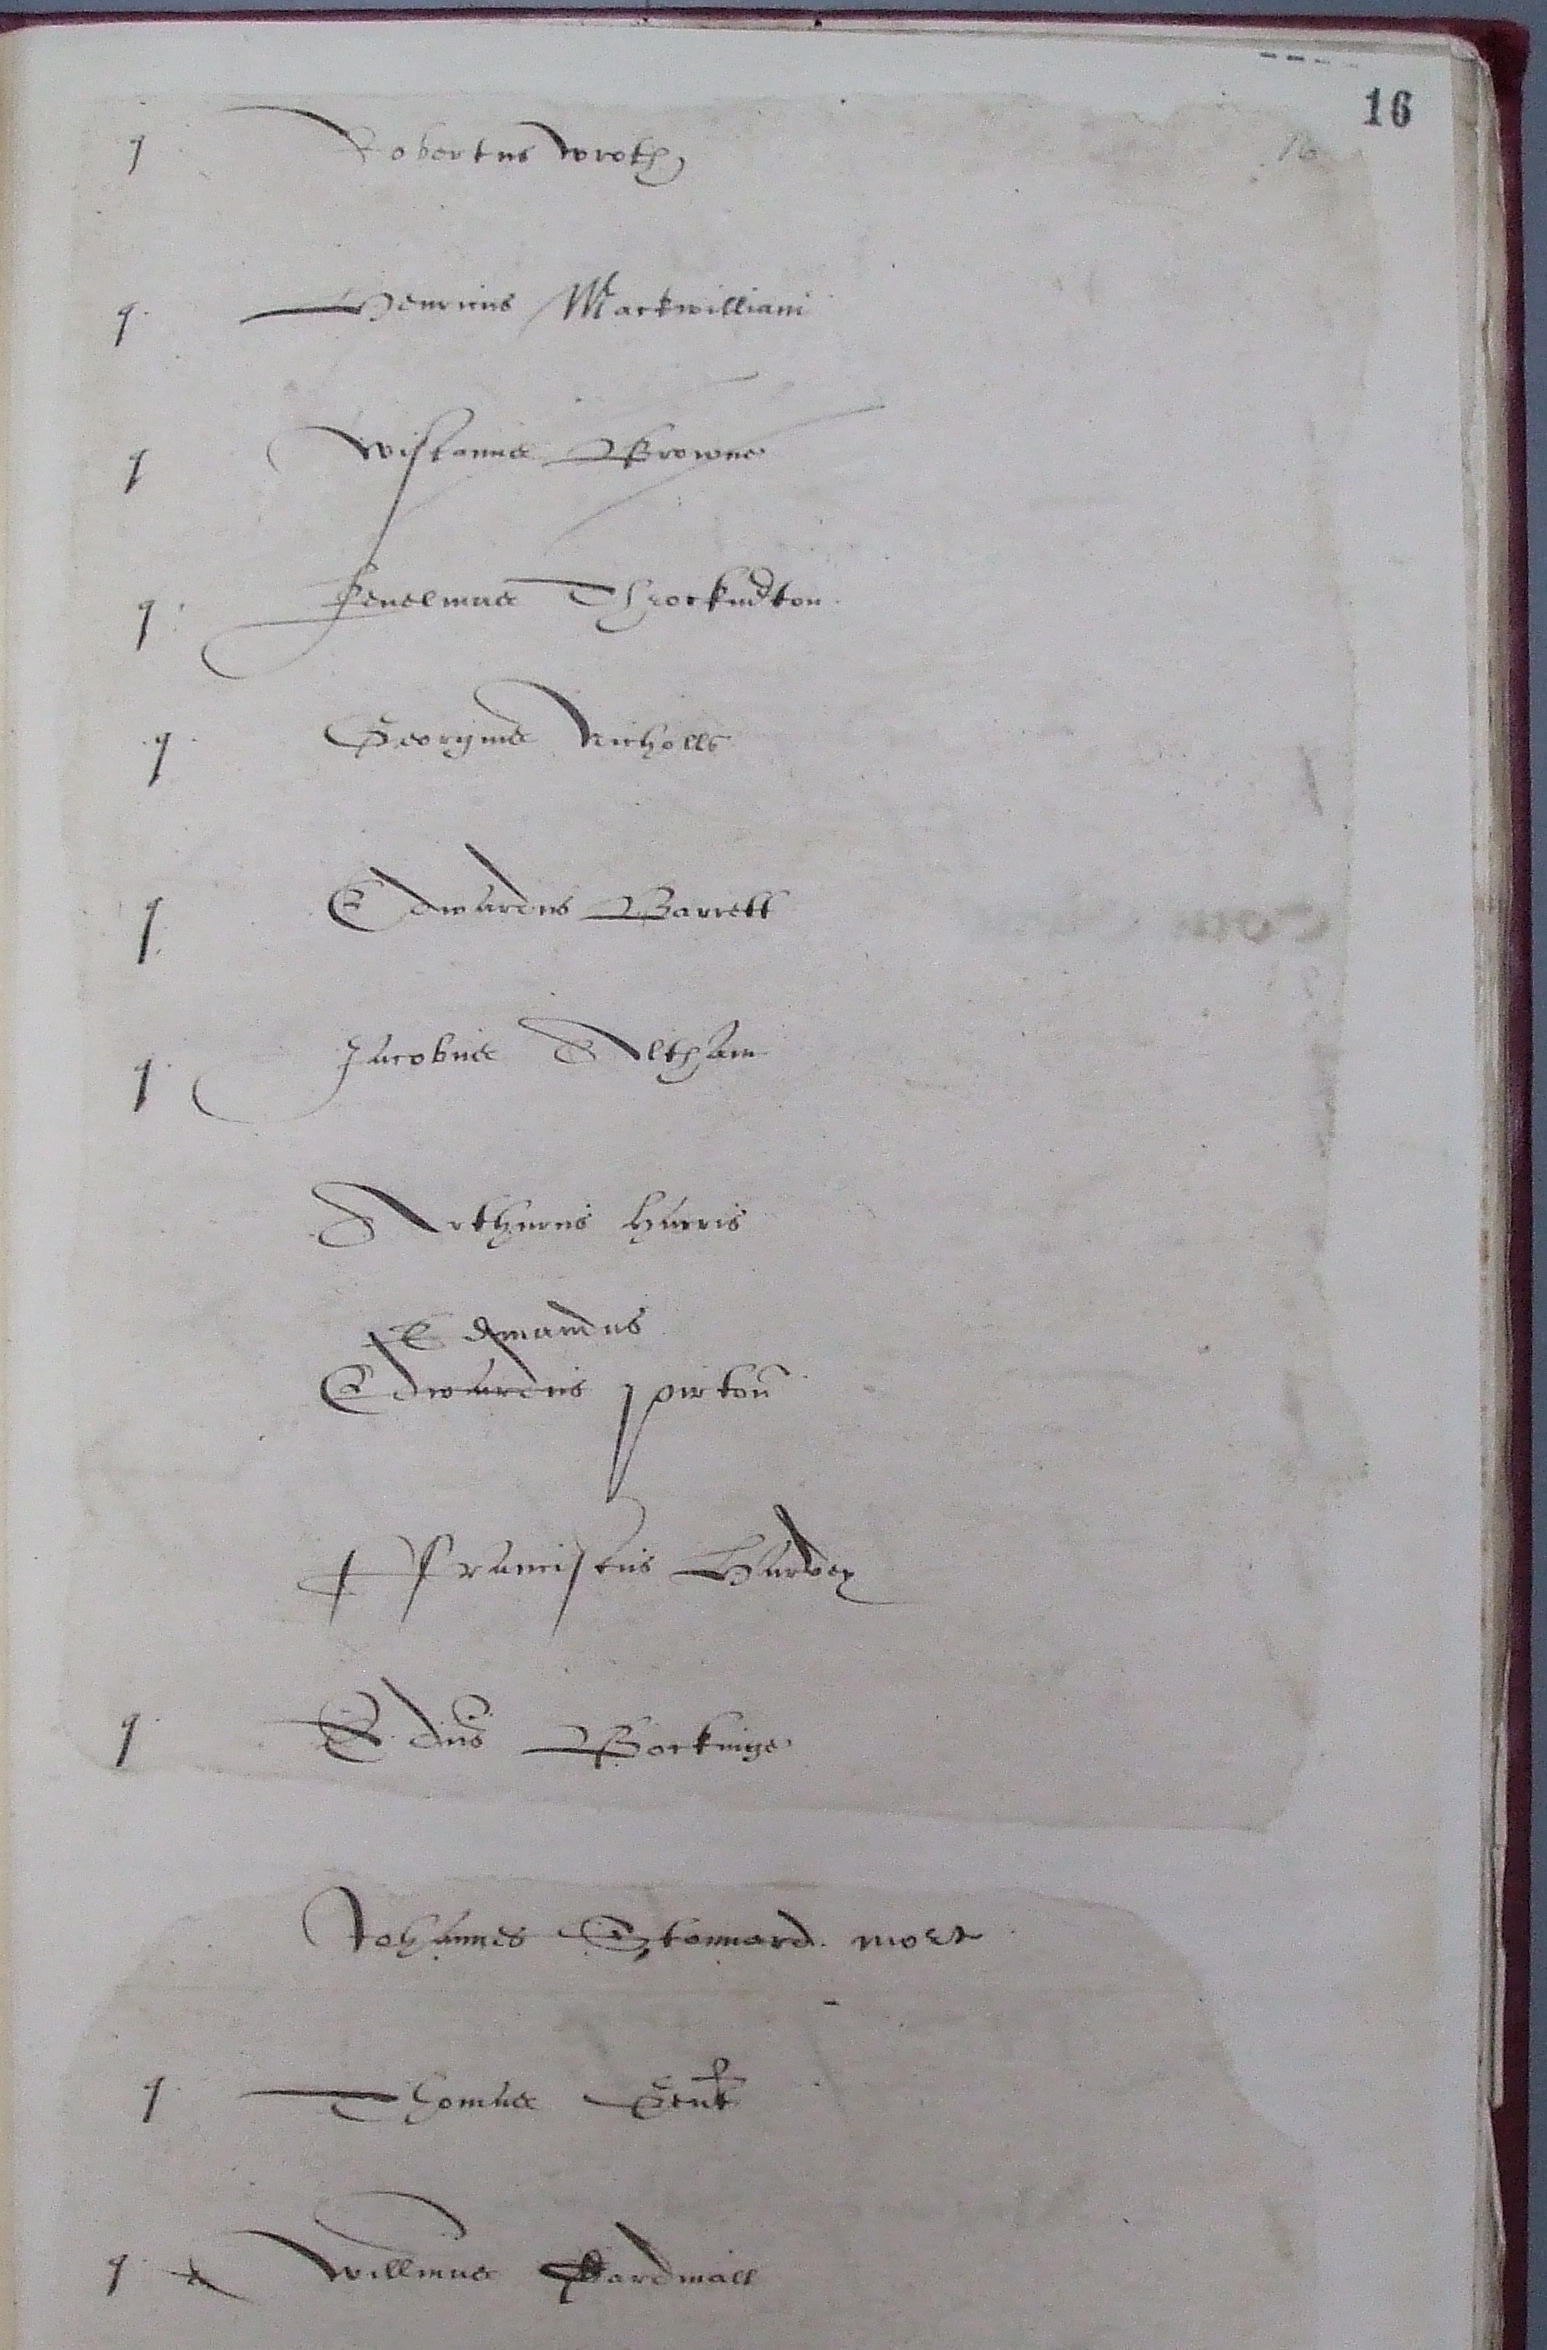 16
16
q Robertus Wroth
q Henricus Mackwilliam
q Wistanus Browne
q Kenelmus Throckm'ton
q Georgius Nicholls
q Edwardus Barrett
q Jacobus Altham
Arthurus Harris
Edmundus
Edwardus Pirton
Franciscus Harvey
q Edus Bockinge
Johannes Stonnard mort
q Thomas Gent
q Willmus Cardinall